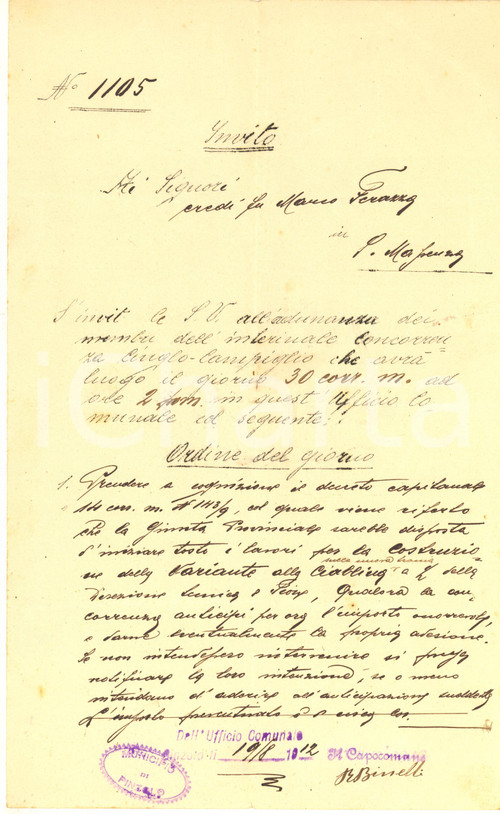 No 1105
Invito
Ai Signori
eredi fu Marco Ferazza
in
S. Massenza
S'invit le S. V. all'adunanza dei
membri dell'interinale concorren
za Cinglo-Campiglio che avrà
luogo il giorno 30 corr. m. ad
ore 2 pm. in quest'Ufficio Co
munale col seguente:
Ordine del giorno
1. Prendere a cognizione il decreto capitanale
14 corr. m. N 1143/9, col quale viene riferto
che la Giunta Provinciale sarebbe disposta
d'iniziare tosto i lavori per la costruzio
sulla nuova
ne della Variante alla della
Direzione qualora la con
correnza anticipi per ora l'importo
e darne eventualmente la propria adesione.
Se non intendessero intervenire si prega
notificare la loro intenzione, se o meno
intendano d'aderire all'anticipazione suddetta
L'importo preventivato è di
Dell'Ufficio Comunale
Pinzolo li 19/8 1912 Il Capocomune
MUNICIPIO DI PINZOLO
Binelli
iCharta